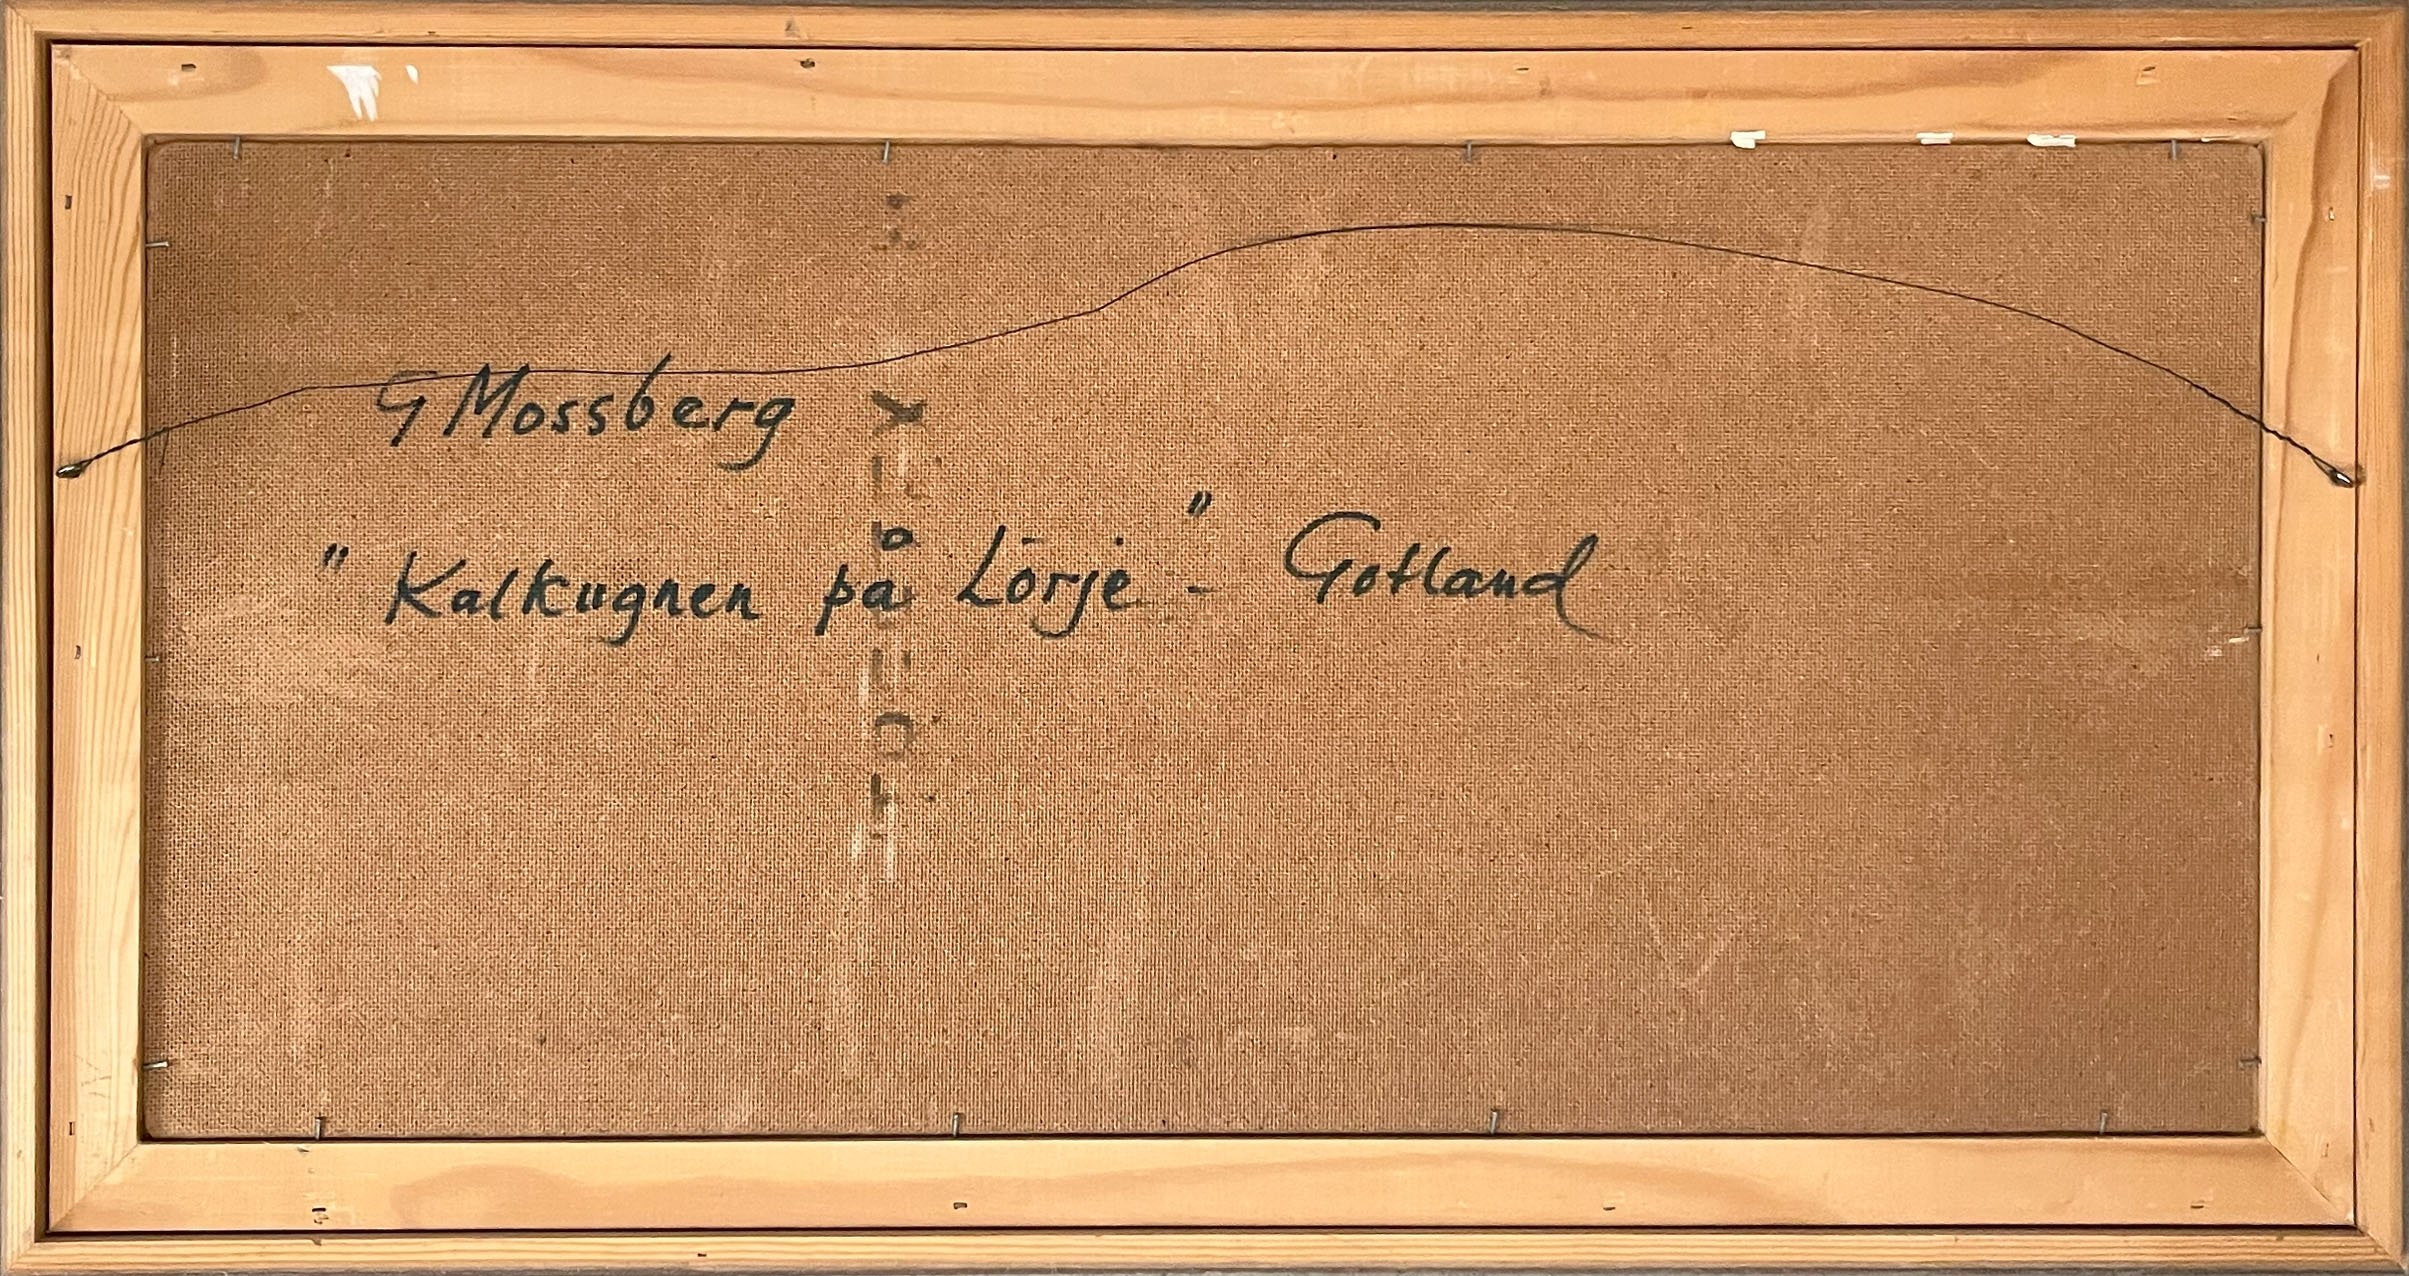 G Mossberg
" Kalkugnen på Lörje" - Gotland